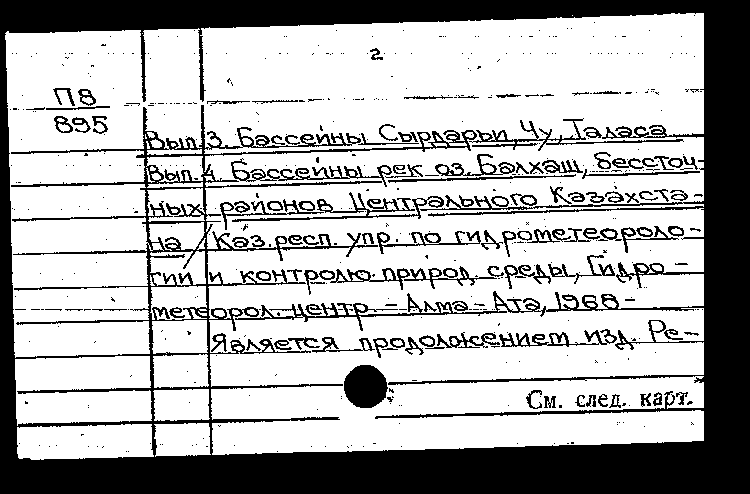 2
П8
895
Вып. 3. Бассейны Сырдарьи, Чу, Таласа
Вып. 4. Бассейны рек оз. Балхаш, бессточ-
ных районов Центрального Казахста-
на / Каз. респ. упр. по гидрометеороло-
гии и контролю природ. среды, Гидро-
метеорол. центр. - Алма-Ата, 1968 -
Является продолжением изд. Ре-
См. след. карт.